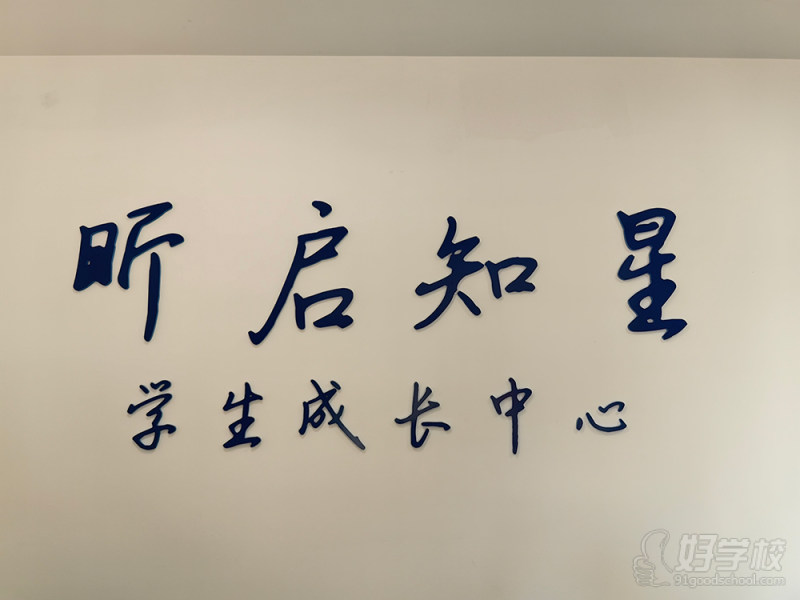 昕启知星
学生成长中心
好学校
91goodschool.com